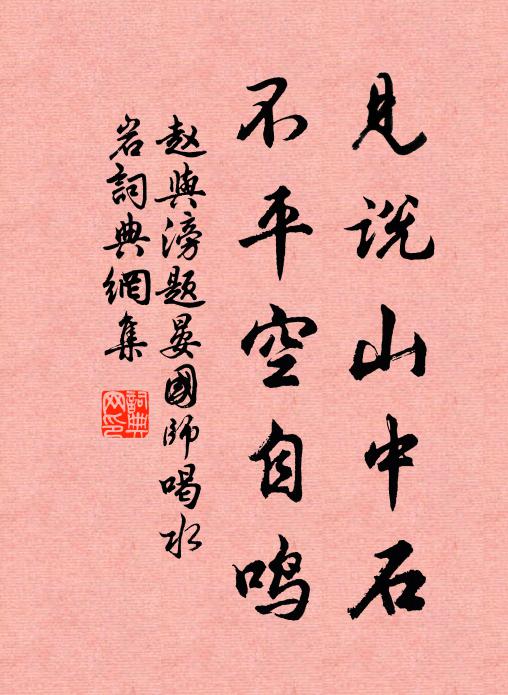 见说山中石
不平空自鸣
赵與滂题晏國師喝水
岩詞典網集
詞典
网印